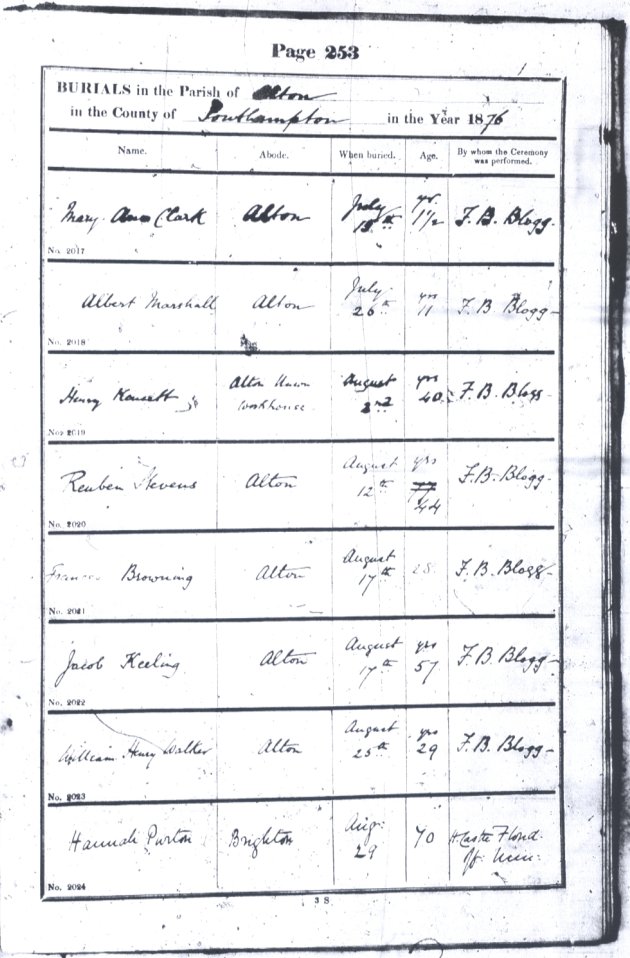 Page 253
BURIALS in the Parish of Alton
in the County of Southampton in the Year 1876
Name. Abode. When buried. Age. By whom the Ceremony was performed.
Mary Ann Clark Alton July 15th yrs. 1 1/2 F. B. Blogg
No. 2017
Albert Marshall Alton July 26th yrs F. B. Blogg
No. 2018
Henry Alton Union Workhouse August 2nd yrs 40 F. B. Blogg
No. 2019
Reuben Stevens Alton August 12th yrs 44 F. B. Blogg
No. 2020
Frances Browning Alton August 17th 28 F. B. Blogg
No. 2021
Jacob Keeling Alton August 17th yrs 57 F. B. Blogg
No. 2022
William Henry Walker Alton August 25th yrs 29 F. B. Blogg
No. 2023
Hannah Purton Brighton Aug. 29 70
No. 2024
3 S